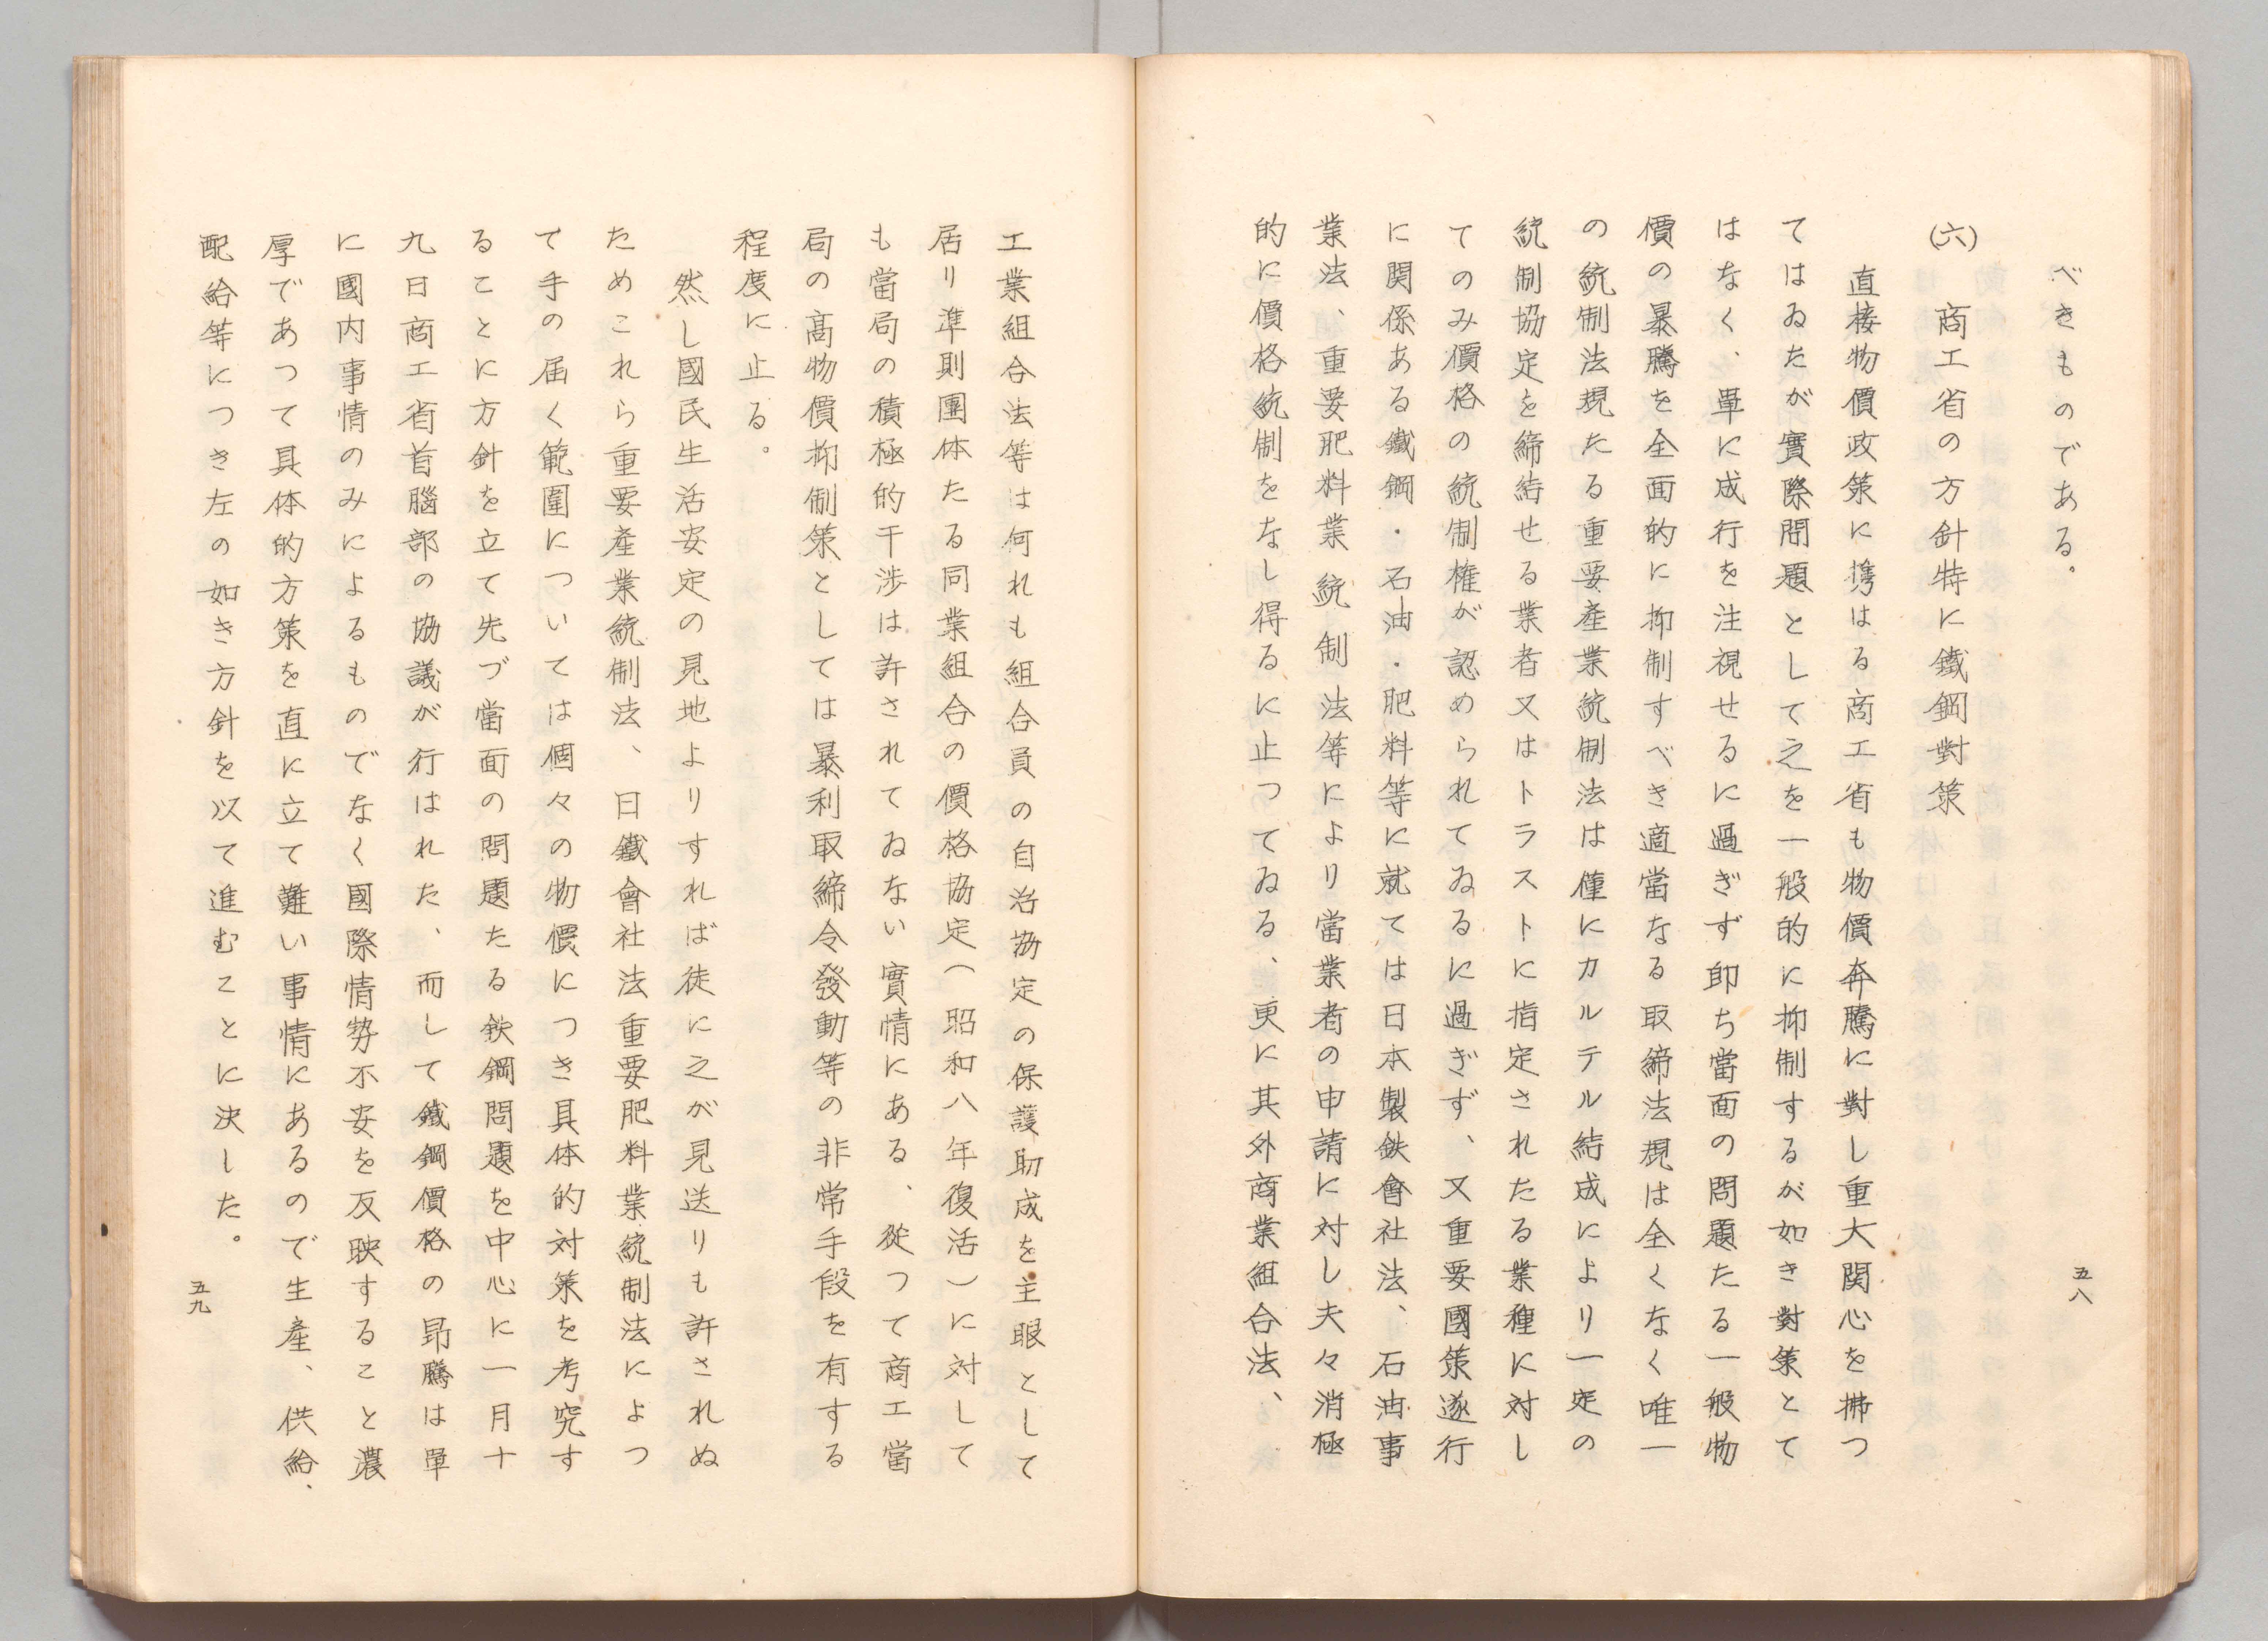 べきものである。
(六)　商工省の方針特に鐵鋼對策
直接物價政策に携はる商工省も物價奔騰に對し重大関心を拂つ
てはゐたが實際問題として之を一般的に抑制するが如き對策とて
はなく、單に成行を注視せるに過ぎず卽ち當面の問題たる一般物
價の暴騰を全面的に抑制すべき適當なる取締法規は全くなく唯一
の統制法規たる重要產業統制法は僅にカルテル結成により一定の
統制協定を締結せる業者又はトラストに指定されたる業種に対し
てのみ價格の統制権が認められてゐるに過ぎず、又重要國策遂行
に関係ある鐵鋼・石油・肥料等に就ては日本製鉄會社法、石油事
業法、重要肥料業統制法等により當業者の申請に対し夫々消極
的に價格統制をなし得るに止つてゐる、更に其外商業組合法、
五八
工業組合法等は何れも組合員の自治協定の保護助成を主眼として
居り準則團体たる同業組合の價格協定(昭和八年復活)に対して
も當局の積極的干渉は許されてゐない實情にある、從つて商工當
局の髙物價抑制策としては暴利取締令發動等の非常手段を有する
程度に止る。
然し國民生活安定の見地よりすれば徒に之が見送りも許されぬ
ためこれら重要產業統制法、日鐵會社法重要肥料業統制法によつ
て手の届く範圍については個々の物價につき具体的対策を考究す
ることに方針を立て先づ當面の問題たる鉄鋼問題を中心に一月十
九日商工省首腦部の協議が行はれた、而して鐵鋼價格の昻騰は單
に國内事情のみによるものでなく國際情勢不安を反映すること濃
厚であつて具体的方策を直に立て難い事情にあるので生產、供給、
配給等につき左の如き方針を以て進むことに決した。
五九